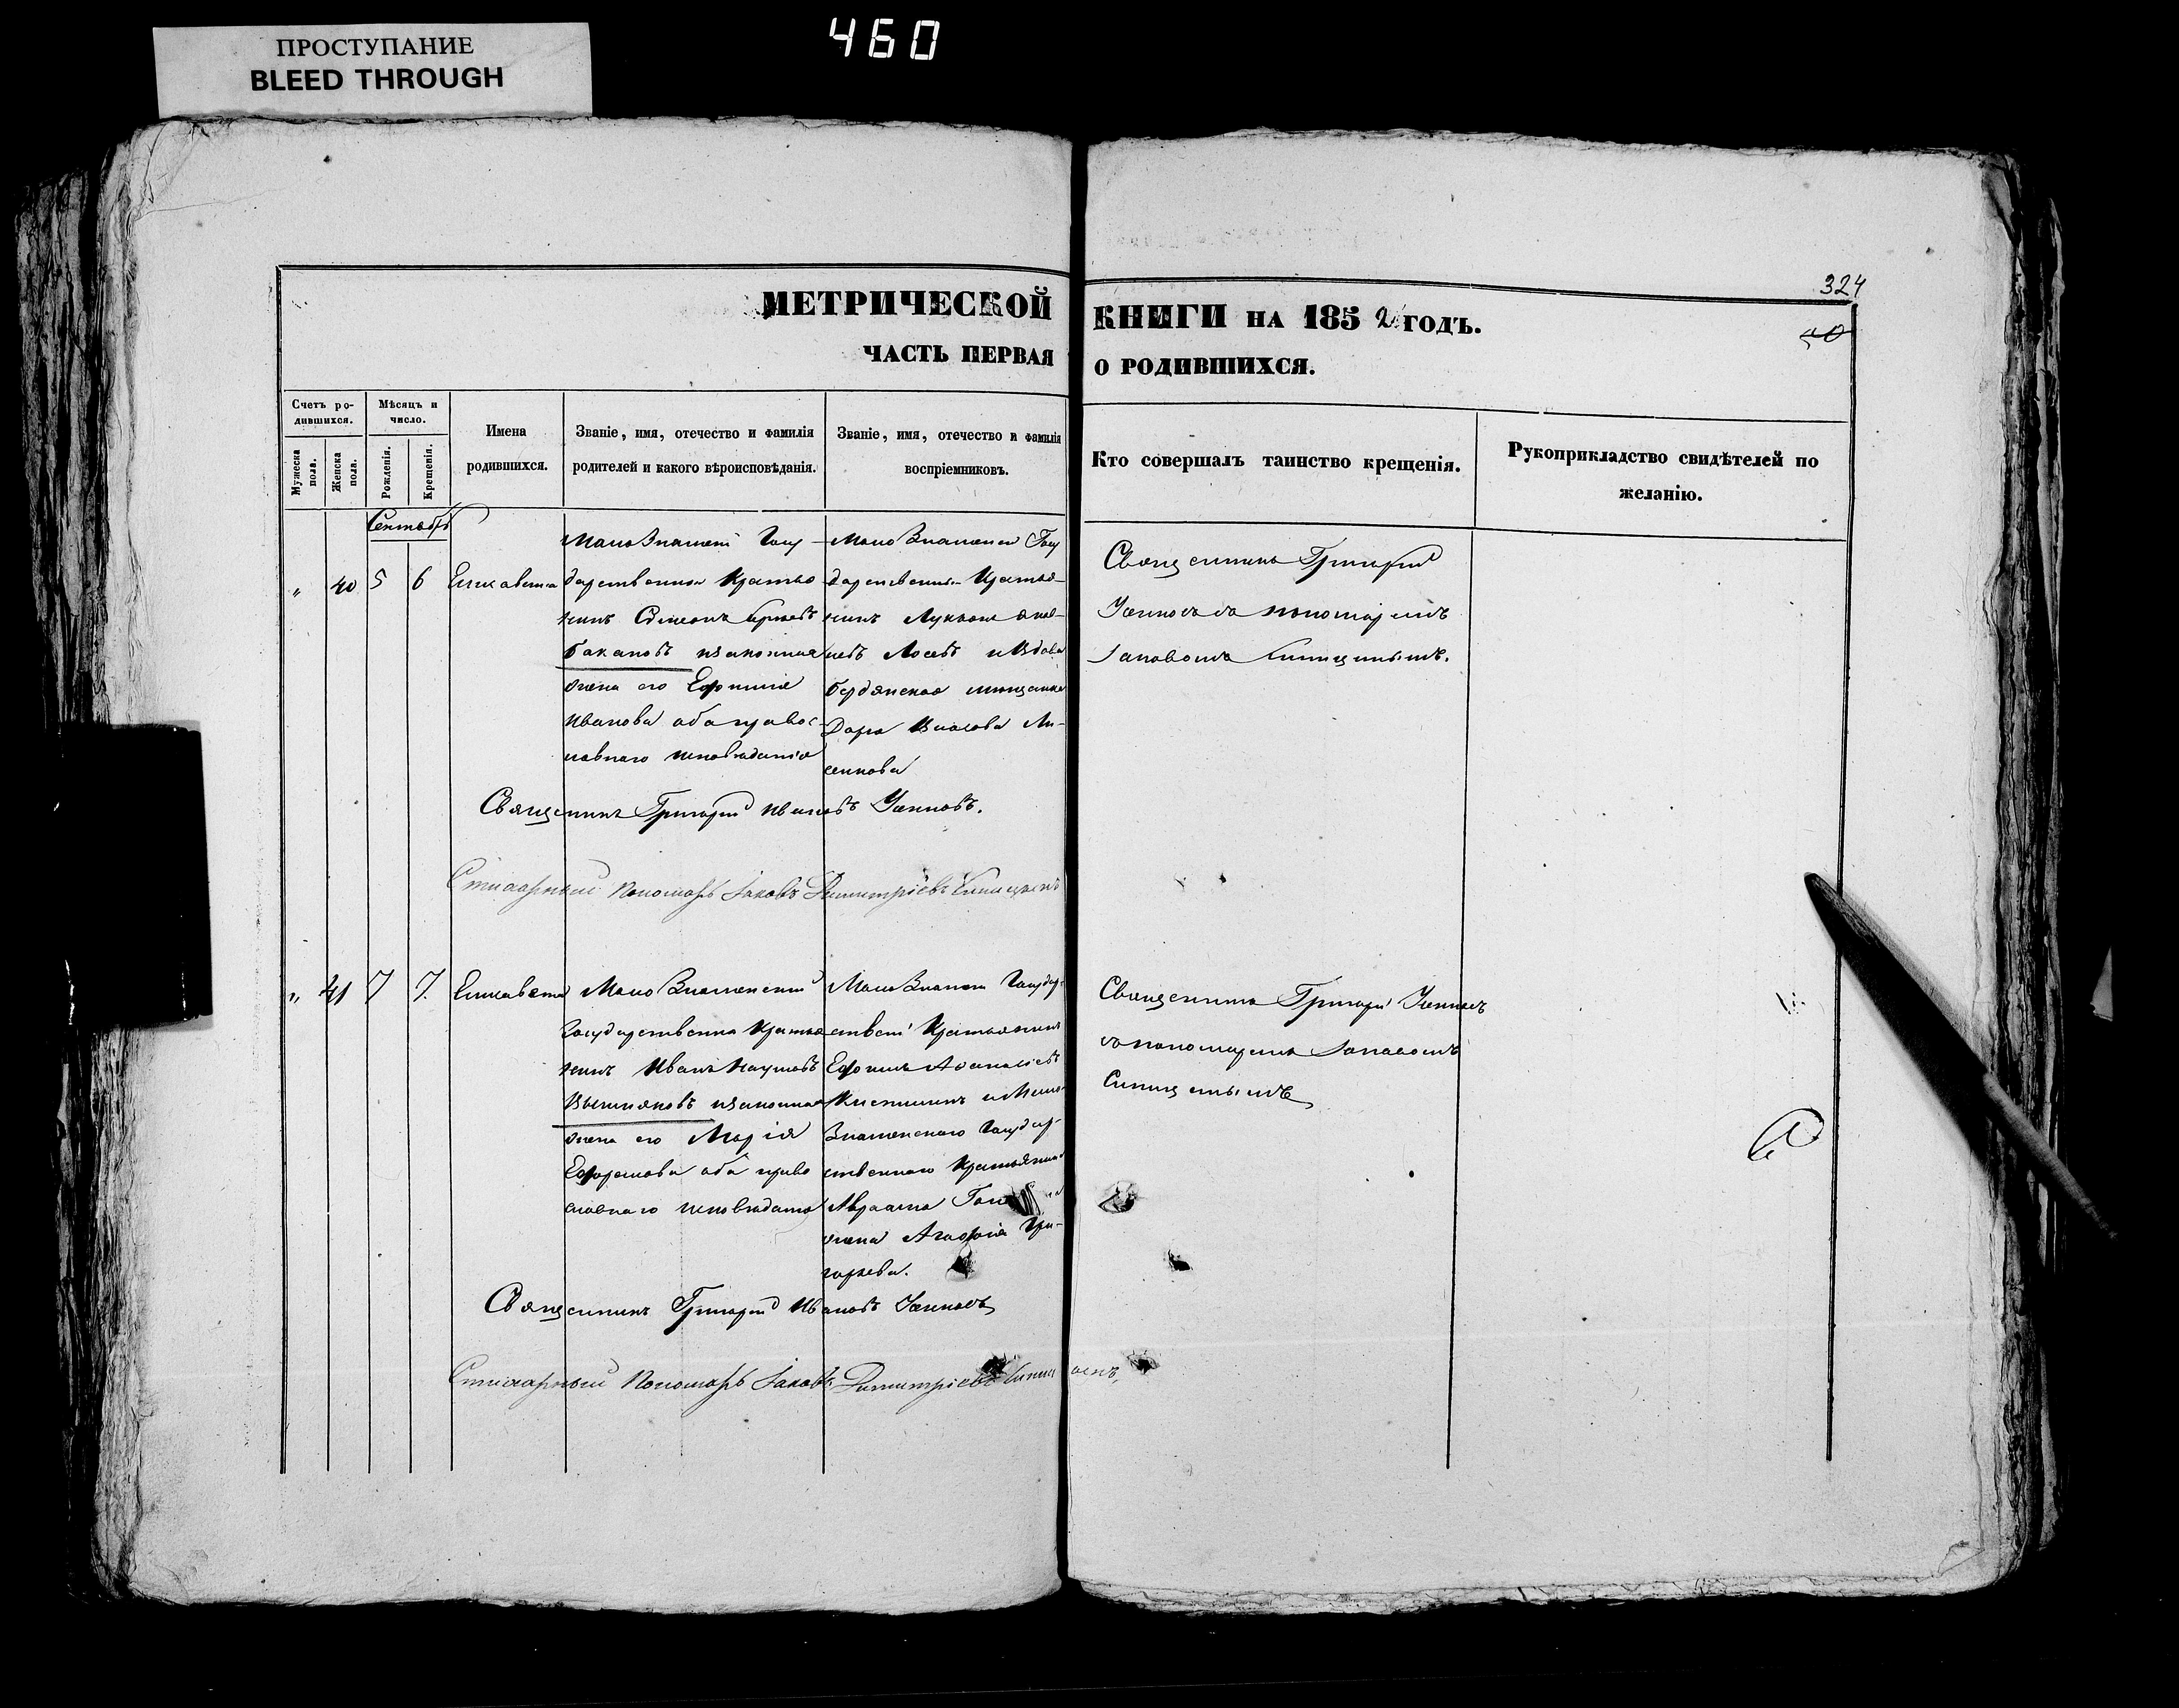 ПРОСТУПАНИЕ
BLEED THROUGH
460
324
МЕТРИЧЕСКОЙ КНИГИ НА 1852 ГОДЪ.
ЧАСТЬ ПЕРВАЯ О РОДИВШИХСЯ.
Счетъ ро-
дившихся.
Мужеска пола.
Женска пола.
Мѣсяцъ и
число.
Рожденія.
Крещенія.
Имена
родившихся.
Званіе, имя, отечество и фамилія
родителей и какого вѣроисповѣданія.
Званіе, имя, отечество и фамилія
воспріемниковъ.
Кто совершалъ таинство крещенія.
Рукоприкладство свидѣтелей по
желанію.
Сентябрь
" 40 5 6 Елисавета
МалоЗнаменс Госу
дарственный Крестья
нинъ Симеонъ
Бакановъ изаконная
жена его Ефимия
Иванова оба правос
лавнаго исповѣданія
МалоЗнаменс Госу
дарственный Крестья-
нинъ Лукьянъ
Лосевъ иВдова
бердянская мещанка
Дарья Власова Ли-
сенкова
Священникъ Григорій
съ пономаремъ
Іаковомъ Синицынымъ.
Священникъ Григорій Ивановъ
Стихарный Пономарь Іаковъ Димитріевъ Синицынъ
" 41 7 7. Елисавета
МалоЗнаменский
Государственны Крестья
нинъ Иванъ Наумовъ
изаконная
жена его Марія
Ефремова оба право
славнаго исповѣданія
МалоЗнамен Государ
ствен Крестьянинъ
Ефимъ Афанасіевъ
иМало
Знаменскаго Государ-
ственнаго Крестьянина
Авраама
жена Агафія Гри-
горьева.
Священникъ Григорій
съпономаремъ Іаковомъ
Синицынымъ
Священникъ Григорій Ивановъ
Стихарный Пономарь Іаковъ Димитріевъ Синицынъ,